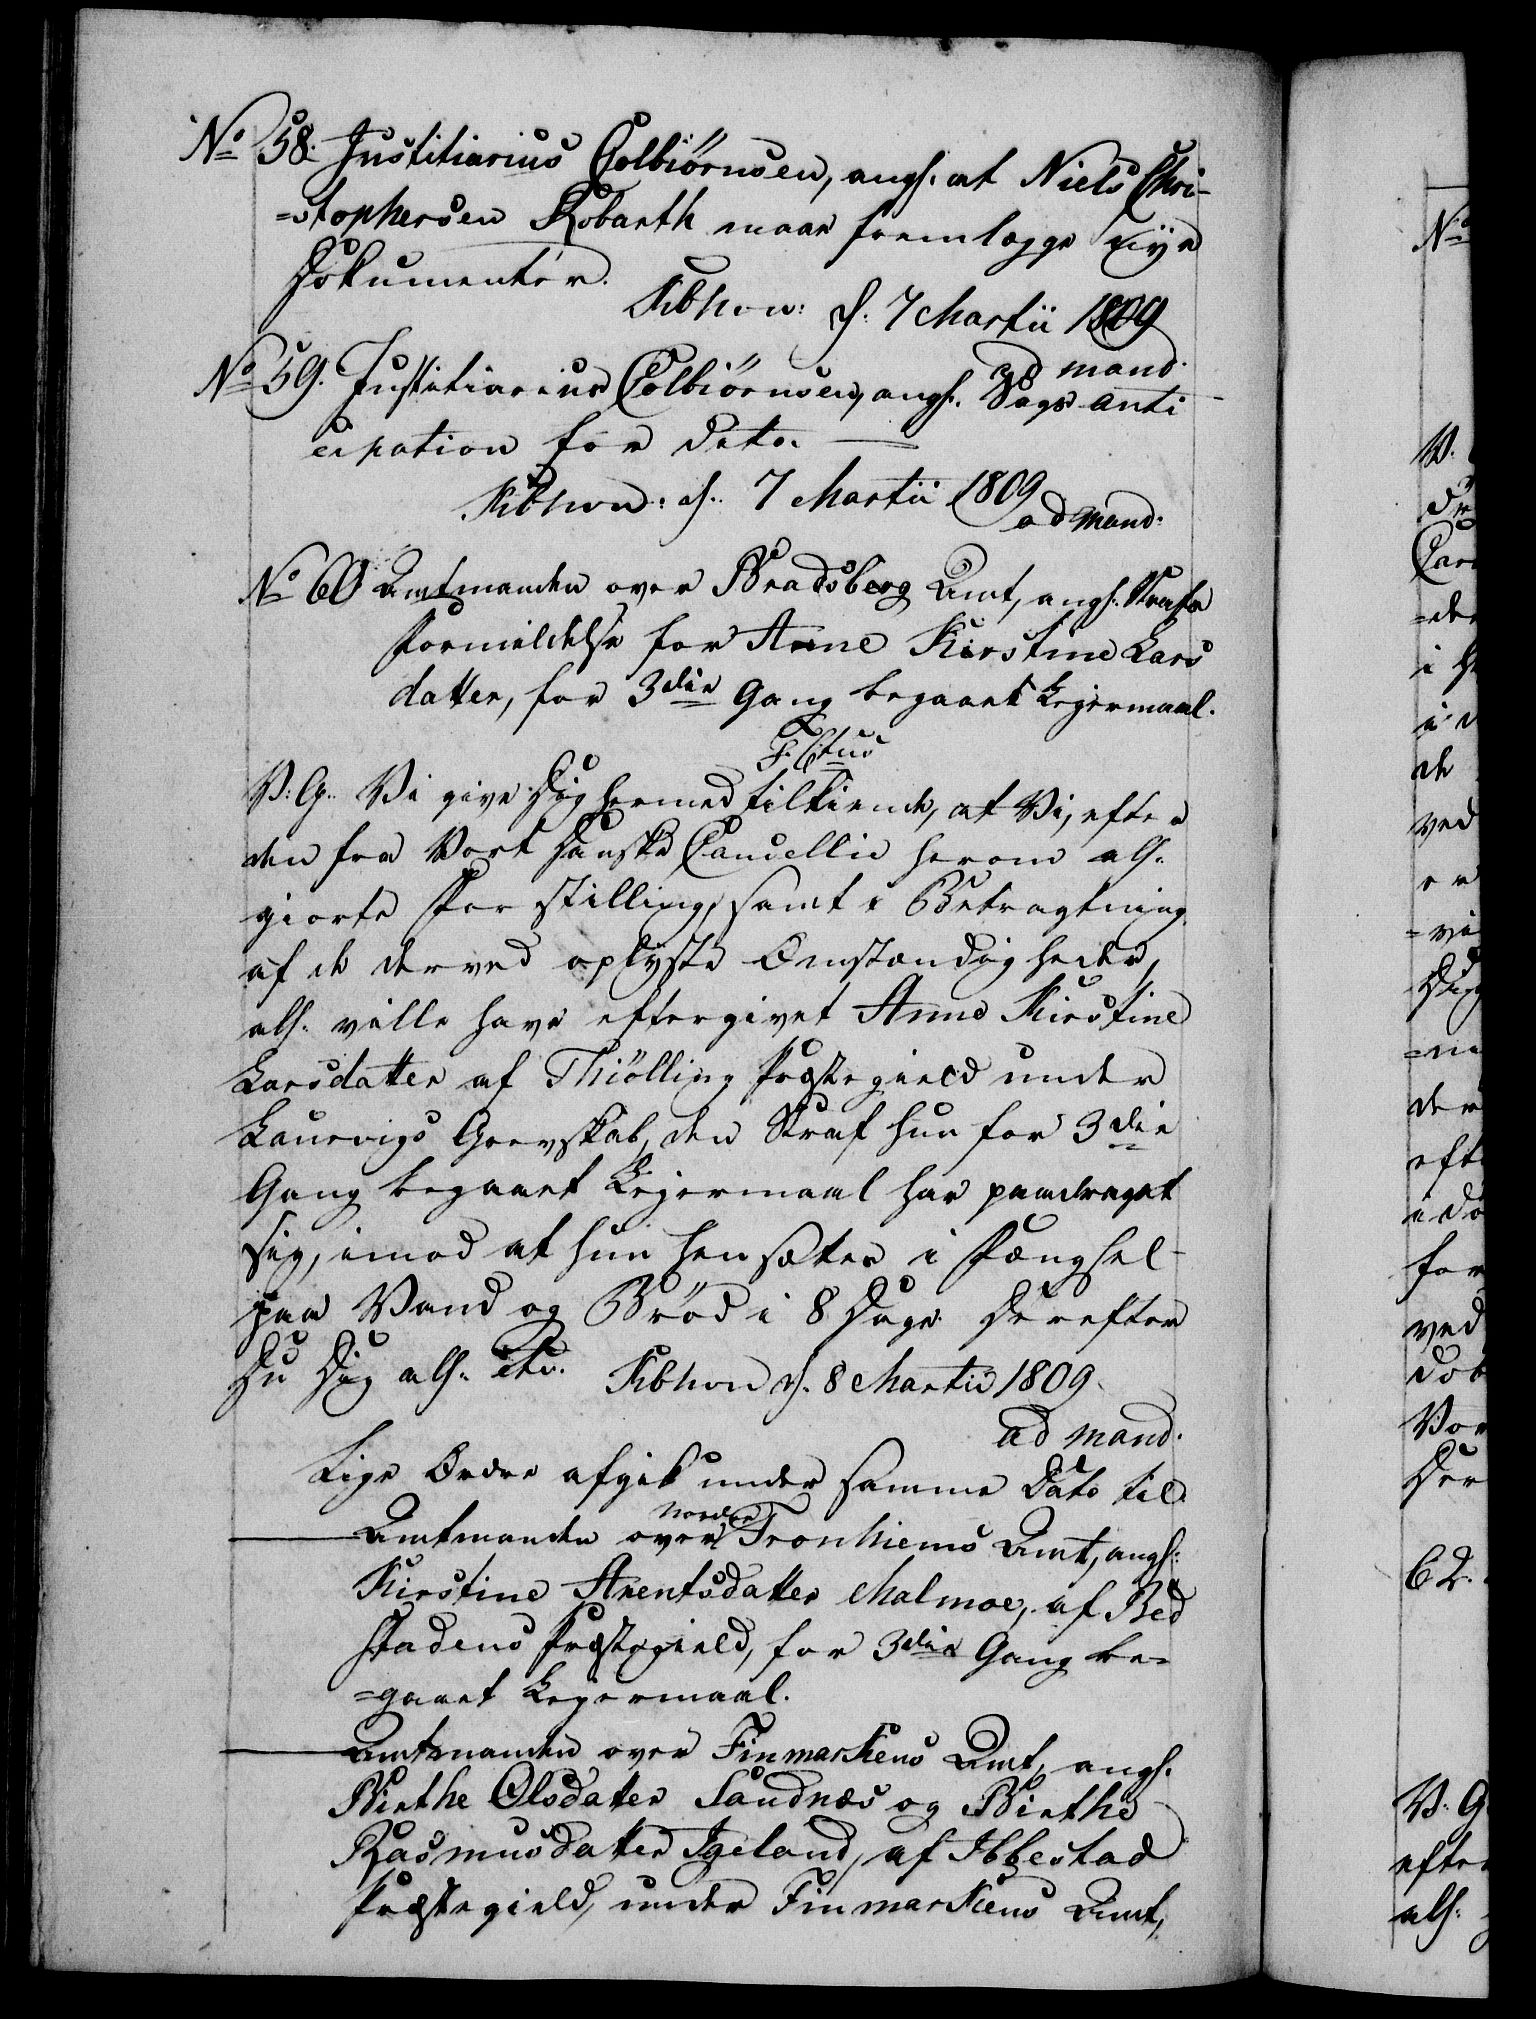 No 58. Justitiarius Colbiørnsen, angl. at Niels Chri-
=stophersen Robarth maae fremlægge nye
Dokumenter.
Kbhvn: d. 7 Martii 1809
ad mand.
No 59. Justitiarius Colbiørnsen, angl. Sags anti
cipation for dito.
Kbhvn: d. 7 Martii 1809
ad mand.
No 60 Amtmanden over Bradsberg Amt, angl. Straffe
Formildelse for Anne Kirstine Lars
datter, for 3die Gang begaaet Lejermaal.
S. Ctus
V. G. Vi give Dig hermed tilkiende, at Vi, efter
den fra Vort Danske Cancellie herom all.
giorte Forestilling, samt i Betragtning
af de derved oplyste Omstændigheder,
all. ville have eftergivet Anne Kirstine
Larsdatter af Thiølling Præstegield under
Laurvigs Grevskab, den Straf hun for 3die
Gang begaaet Lejermaal har paadraget
sig, imod at hun hensættes i Fængsel
paa Vand og Brød i 8 Dage. Derefter
Du Dig all. etc. Kbhvn d. 8 Martii 1809.
ad mand.
Lige Ordre afgik under samme Dato til
Amtmanden over Nordre Tronhiems Amt, angl:
Kirstine Arentsdatter Malmoe, af Bed
stadens Præstegield, for 3die Gang be=
=gaaet Lejermaal.
Amtmanden over Finmarkens Amt, angl.
Birthe Olsdatter Sandnæs og Birthe
Rasmusdatter Igeland, af Ibbestad
Præstegield, under Finmarkens Amt,